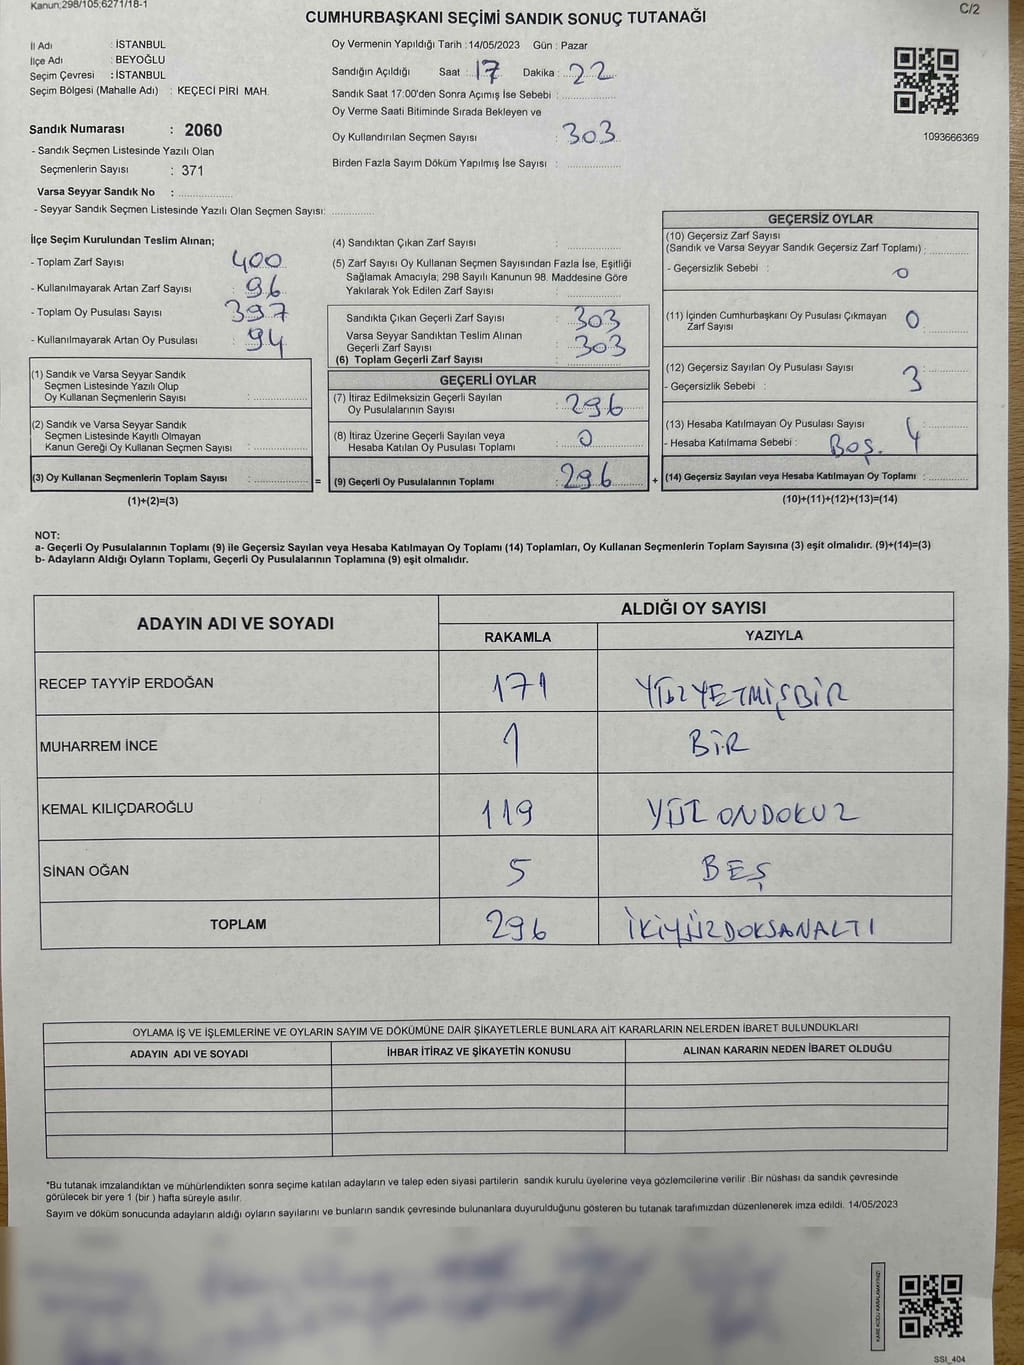 Kanun;298/105,6271/18-1
C/2
CUMHURBAŞKANI SEÇİMİ SANDIK SONUÇ TUTANAĞI
İl Adı : İSTANBUL
İlçe Adı : BEYOĞLU
Seçim Çevresi : İSTANBUL
Seçim Bölgesi (Mahalle Adı) : KEÇECİ PİRİ MAH.
Sandık Numarası : 2060
- Sandık Seçmen Listesinde Yazılı Olan
Seçmenlerin Sayısı : 371
Varsa Seyyar Sandık No : ..............
- Seyyar Sandık Seçmen Listesinde Yazılı Olan Seçmen Sayısı: ..............
Oy Vermenin Yapıldığı Tarih : 14/05/2023 Gün : Pazar
Sandığın Açıldığı Saat : 17 Dakika : 22
Sandık Saat 17:00'den Sonra Açımış İse Sebebi : ..............
Oy Verme Saati Bitiminde Sırada Bekleyen ve
Oy Kullandırılan Seçmen Sayısı : 303
Birden Fazla Sayım Döküm Yapılmış İse Sayısı : ..............
1093666369
İlçe Seçim Kurulundan Teslim Alınan;
- Toplam Zarf Sayısı : 400
- Kullanılmayarak Artan Zarf Sayısı : 96
- Toplam Oy Pusulası Sayısı : 397
- Kullanılmayarak Artan Oy Pusulası : 94
(1) Sandık ve Varsa Seyyar Sandık
Seçmen Listesinde Yazılı Olup
Oy Kullanan Seçmenlerin Sayısı : ..............
(2) Sandık ve Varsa Seyyar Sandık
Seçmen Listesinde Kayıtlı Olmayan
Kanun Gereği Oy Kullanan Seçmen Sayısı : ..............
(3) Oy Kullanan Seçmenlerin Toplam Sayısı : .............. =
(1)+(2)=(3)
(4) Sandıktan Çıkan Zarf Sayısı : ..............
(5) Zarf Sayısı Oy Kullanan Seçmen Sayısından Fazla İse, Eşitliği
Sağlamak Amacıyla; 298 Sayılı Kanunun 98. Maddesine Göre
Yakılarak Yok Edilen Zarf Sayısı : ..............
Sandıkta Çıkan Geçerli Zarf Sayısı : 303
Varsa Seyyar Sandıktan Teslim Alınan
Geçerli Zarf Sayısı : 303
(6) Toplam Geçerli Zarf Sayısı : ..............
GEÇERLİ OYLAR
(7) İtiraz Edilmeksizin Geçerli Sayılan
Oy Pusulalarının Sayısı : 296
(8) İtiraz Üzerine Geçerli Sayılan veya
Hesaba Katılan Oy Pusulaları Toplamı : 0
(9) Geçerli Oy Pusulalarının Toplamı : 296 +
GEÇERSİZ OYLAR
(10) Geçersiz Zarf Sayısı
(Sandık ve Varsa Seyyar Sandık Geçersiz Zarf Toplamı) : ..............
- Geçersizlik Sebebi : 0
(11) İçinden Cumhurbaşkanı Oy Pusulası Çıkmayan
Zarf Sayısı : 0
(12) Geçersiz Sayılan Oy Pusulası Sayısı : 3
- Geçersizlik Sebebi :
(13) Hesaba Katılmayan Oy Pusulası Sayısı : 4
- Hesaba Katılmama Sebebi : Boş.
(14) Geçersiz Sayılan veya Hesaba Katılmayan Oy Toplamı : ..............
(10)+(11)+(12)+(13)=(14)
NOT:
a- Geçerli Oy Pusulalarının Toplamı (9) ile Geçersiz Sayılan veya Hesaba Katılmayan Oy Toplamı (14) Toplamları, Oy Kullanan Seçmenlerin Toplam Sayısına (3) eşit olmalıdır. (9)+(14)=(3)
b- Adayların Aldığı Oyların Toplamı, Geçerli Oy Pusulalarının Toplamına (9) eşit olmalıdır.
ADAYIN ADI VE SOYADI ALDIĞI OY SAYISI
RAKAMLA YAZIYLA
RECEP TAYYİP ERDOĞAN 171 YÜZYETMİŞBİR
MUHARREM İNCE 1 BİR
KEMAL KILIÇDAROĞLU 119 YÜZ ONDOKUZ
SİNAN OĞAN 5 BEŞ
TOPLAM 296 İKİYÜZDOKSANALTI
OYLAMA İŞ VE İŞLEMLERİNE VE OYLARIN SAYIM VE DÖKÜMÜNE DAİR ŞİKAYETLERLE BUNLARA AİT KARARLARIN NELERDEN İBARET BULUNDUKLARI
ADAYIN ADI VE SOYADI İHBAR İTİRAZ VE ŞİKAYETİN KONUSU ALINAN KARARIN NEDEN İBARET OLDUĞU
*Bu tutanak imzalandıktan ve mühürlendikten sonra seçime katılan adayların ve talep eden siyasi partilerin sandık kurulu üyelerine veya gözlemcilerine verilir. Bir nüshası da sandık çevresinde
görülecek bir yere 1 (bir) hafta süreyle asılır.
Sayım ve döküm sonucunda adayların aldığı oyların sayılarını ve bunların sandık çevresinde bulunanlara duyurulduğunu gösteren bu tutanak tarafımızdan düzenlenerek imza edildi. 14/05/2023
KARE KODU KARALAMAYINIZ!
SSI_404